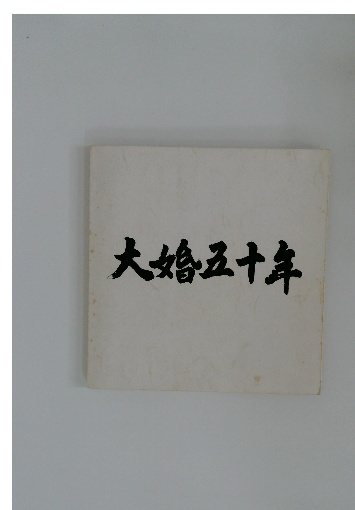 大婚五十年